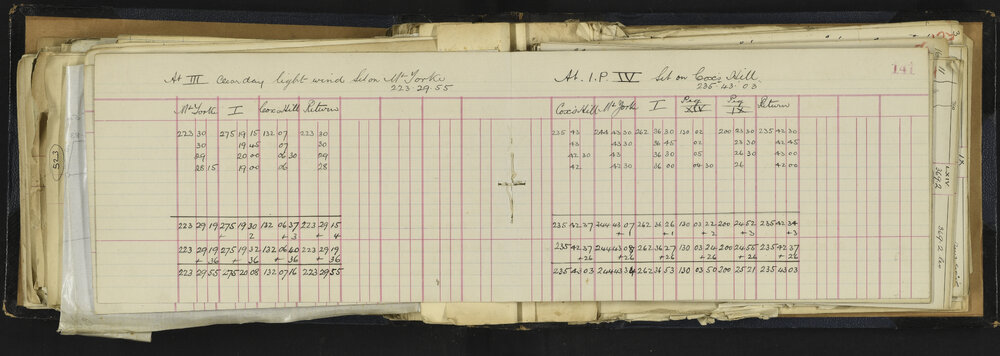 At III Clear day light wind Set on Mt Yorke
223.29.55
Mt Yorke I Cox's Hill Return
223 30 275 19 15 132 07 223 30
30 19 45 07 30
29 20 00 06 30 29
28 15 19 00 06 28
223 29 19 275 19 30 132 06 37 223 29 15
+ 2 + 3 + 4
223 29 19 275 19 32 132 06 40 223 29 19
+ 36 + 36 + 36 + 36
223 29 55 275 20 08 132 07 16 223 29 55
At I.P. IV Set on Cox's Hill
235.43.03
141
Cox's Hill Mt Yorke I Peg XIV Peg IX Return
235 43 244 43 30 262 36 30 130 02 200 23 30 235 42 30
43 43 30 36 45 02 23 30 42 45
42 30 43 36 30 05 26 30 43 00
42 42 30 36 00 04 30 26 42 00
235 42 37 244 43 07 262 36 26 130 03 22 200 24 52 235 42 34
+ 1 + 1 + 2 + 3 + 3
235 42 37 244 43 08 262 36 27 130 03 24 200 24 55 235 42 37
+ 26 + 26 + 26 + 26 + 26 + 26
235 43 03 244 43 34 262 36 53 130 03 50 200 25 21 235 43 03
523
LXIV
3692